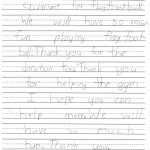 excitment for flag football
We will have so mow
fun playing flag foot
ball. Thank you for the
donation too. Thank you
for helping the gym.
I hope you can
help more. We will
have so much
fun. Thank you